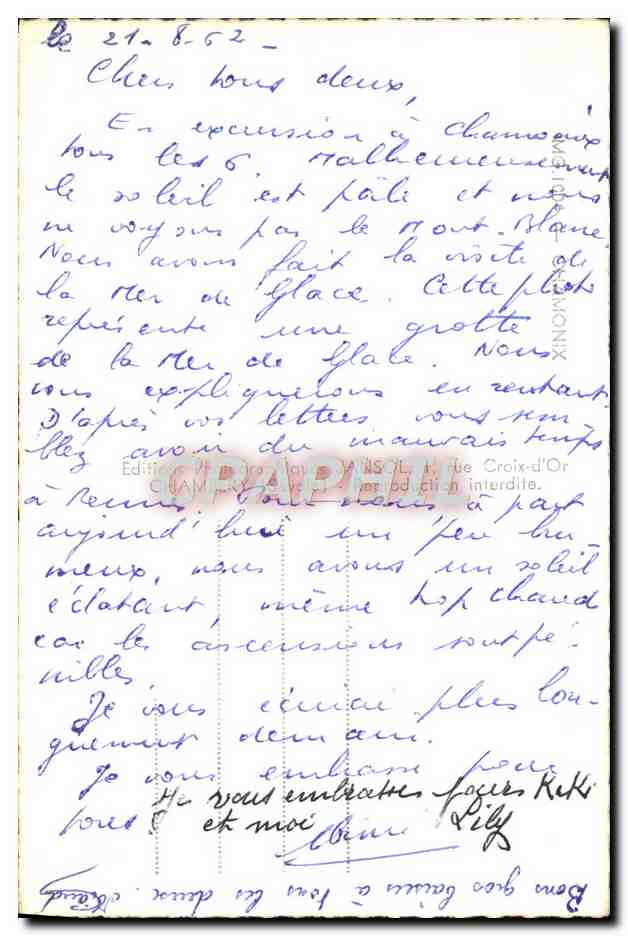 le 21-8-62-
Chers tous deux,
En excursion à Chamonix
tous les 6. Malheureusement
le soleil est pâle et nous
ne voyons pas le Mont-Blanc.
Nous avons fait la visite de
la Mer de Glace. Cette photo
représente une grotte
de la Mer de Glace. Nous
vous expliquerons en rentrant.
D'après vos lettres vous sem-
blez avoir du mauvais temps
Editions J. JANSOL, 1, rue Croix-d'Or
CHAMBERY Reproduction interdite.
CPAPHIL
à Rennes. Pour nous, à part
aujourd'hui un peu bru-
meux, nous avons un soleil
éclatant, même trop chaud
car les ascensions sont pé-
nibles.
Je vous écrirai plus lon-
guement demain.
Je vous embrasse pour
tous
vous embrasser pour Kiki
et moi Lily
Bons gros baisers à tous les deux.
CHAMONIX